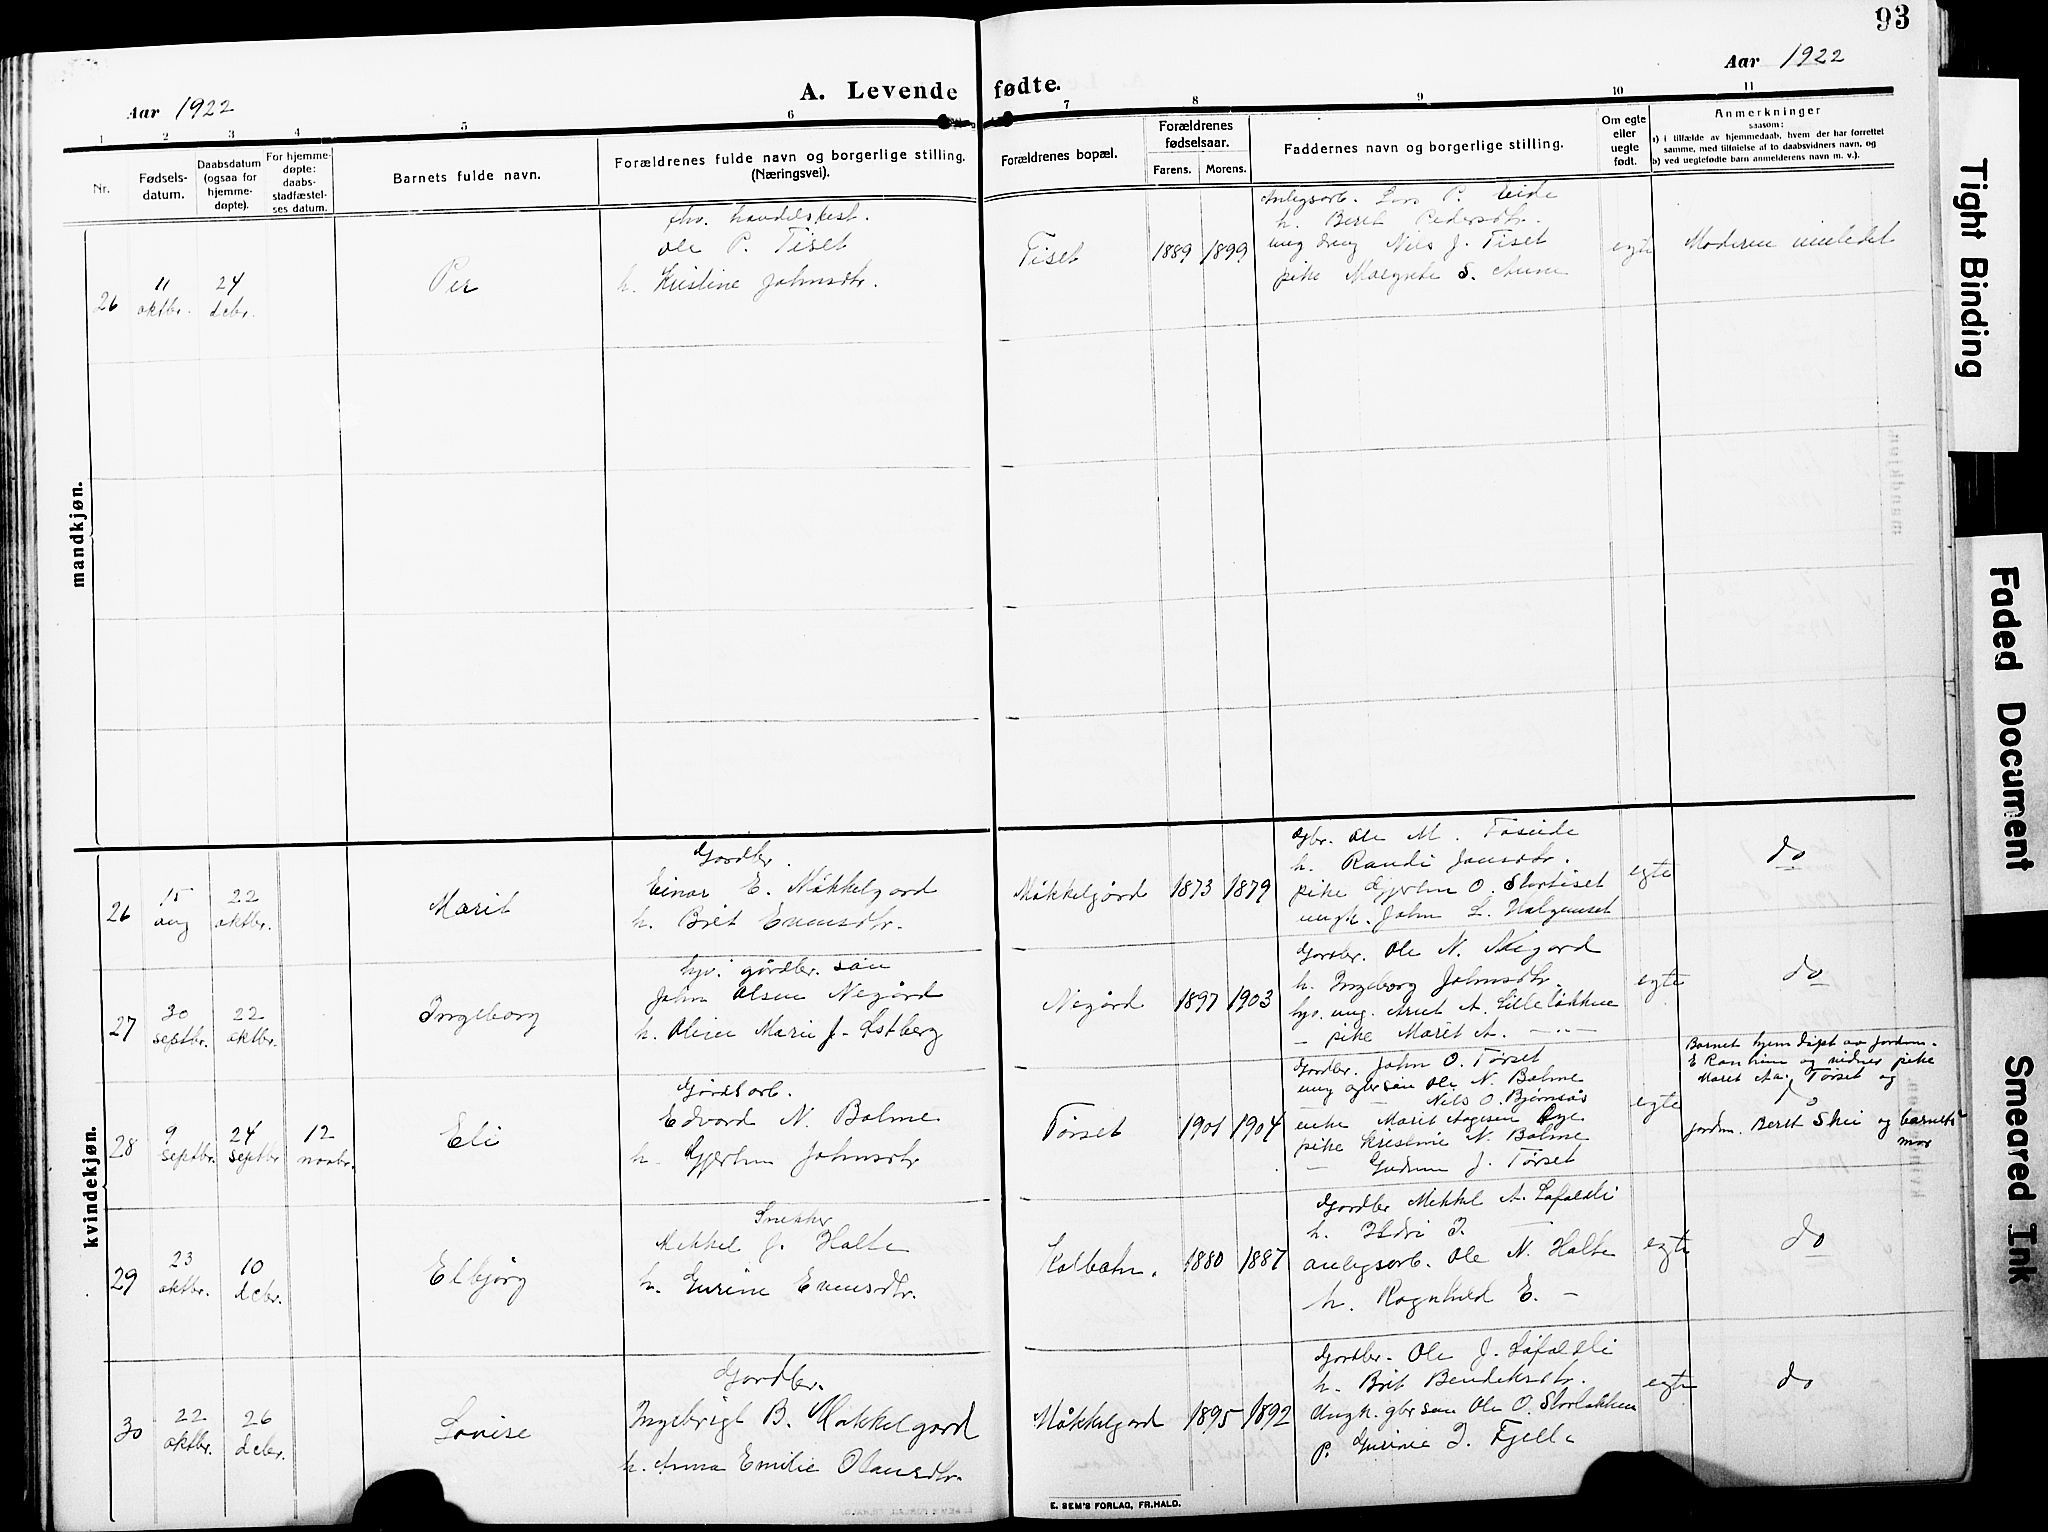 93
Aar 1922
Aar 1922
A. Levende fødte.
1 2 3 4 5 6 7 8 9 10 11
Nr.
Fødsels-
datum.
Daabsdatum
(ogsaa for
hjemme-
døpte).
For hjemme-
døpte:
daabs-
stadfæstel-
ses datum.
Barnets fulde navn.
Forældrenes fulde navn og borgerlige stilling.
(Næringsvei).
Forældrenes bopæl.
Forældrenes
fødselsaar.
Farens. Morens.
Faddernes navn og borgerlige stilling.
Om egte
eller
uegte
født.
Anmerkninger
saasom:
a) i tilfælde av hjemmedaab, hvem der har forrettet
samme, med tilføielse af to daabsvidners navn, og
b) ved uegtefødte barn anmelderens navn m. v.).
mandkjøn.
26
11
oktbr.
24
debr.
Per
fhv. handelsbest.
Ole P. Tiset
h. Kristine Johnsdtr.
Tiset
1889 1899
Anlegsarb. Lars P. Eide
h. Beret Pedersdtr.
ung dreng Nils J. Tiset
pike Margrete S. Aune
egte
Moderen innledet
kvindekjøn.
26
15
aug
22
oktbr.
Marit
Gardbr.
Einar E. Møkkelgard
h. Brit Evensdtr.
Møkkelgård
1873 1879
Gbr. Ole M.
h. Randi Jonsdtr.
pike Gjertru O. Stortiset
ungk. John L. Halgunset
egte
do
27
30
septbr.
22
oktbr.
Ingeborg
gårdbr. søn
John Olsen Negård
h. Oline Marie J. Østberg
Negård
1897 1903
Gardbr. Ole N. Negard
h. Ingeborg Johnsdtr.
ung. Arnt A. Lilleløkken
- pike Marit A. -"-
egte
do
28
9
septbr.
24
septbr
12
novbr.
Eli
Gårdsarb.
Edvard N. Bolme
h. Gjertru Johnsdtr
Tørset
1901 1904
Gardbr. John O. Tørset
ung gbr søn Ole N. Bolme
- Nils O. Bjørnsås
enke Marit Aagesen Rye
pike Kristine N. Bolme
- Gudrun J. Tørset
egte
Barnet hjemdøpt av jordm.
E Ranheim og vidner pike
Marit Aa. Tørset og
jordm. Beret Skei og barnets
mor
29
23
oktbr.
10
debr.
Elbjørg
Snekker
Mikkel J. Halte
h. Gurine Evensdtr.
Kalbakn.
1880 1887
Gardbr Mikkel A. Løfaldli
h. Ildri I. -
anlegsarb. Ole N. Halte
h. Ragnhild E. -
egte
do
30
22
oktbr.
26
debr.
Lovise
Gardbr.
Ingebrigt B. Møkkelgard
h. Anna Emilie Olausdtr.
Møkkelgard
1895 1892
Gardbr. Ole J. Løfaldli
h. Brit Bendiksdtr.
Ungk. gbr søn Ole O. Storløkken
p. Gurine I. Fjelle
egte
do
E. SEM'S FORLAG, FR.HALD.
Tight Binding
Faded Document
Smeared Ink